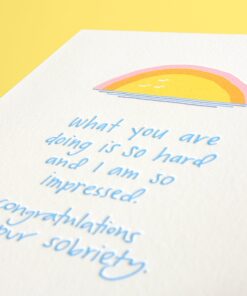 What you are
doing is so hard
and I am so
impressed.
congratulations
our sobriety.